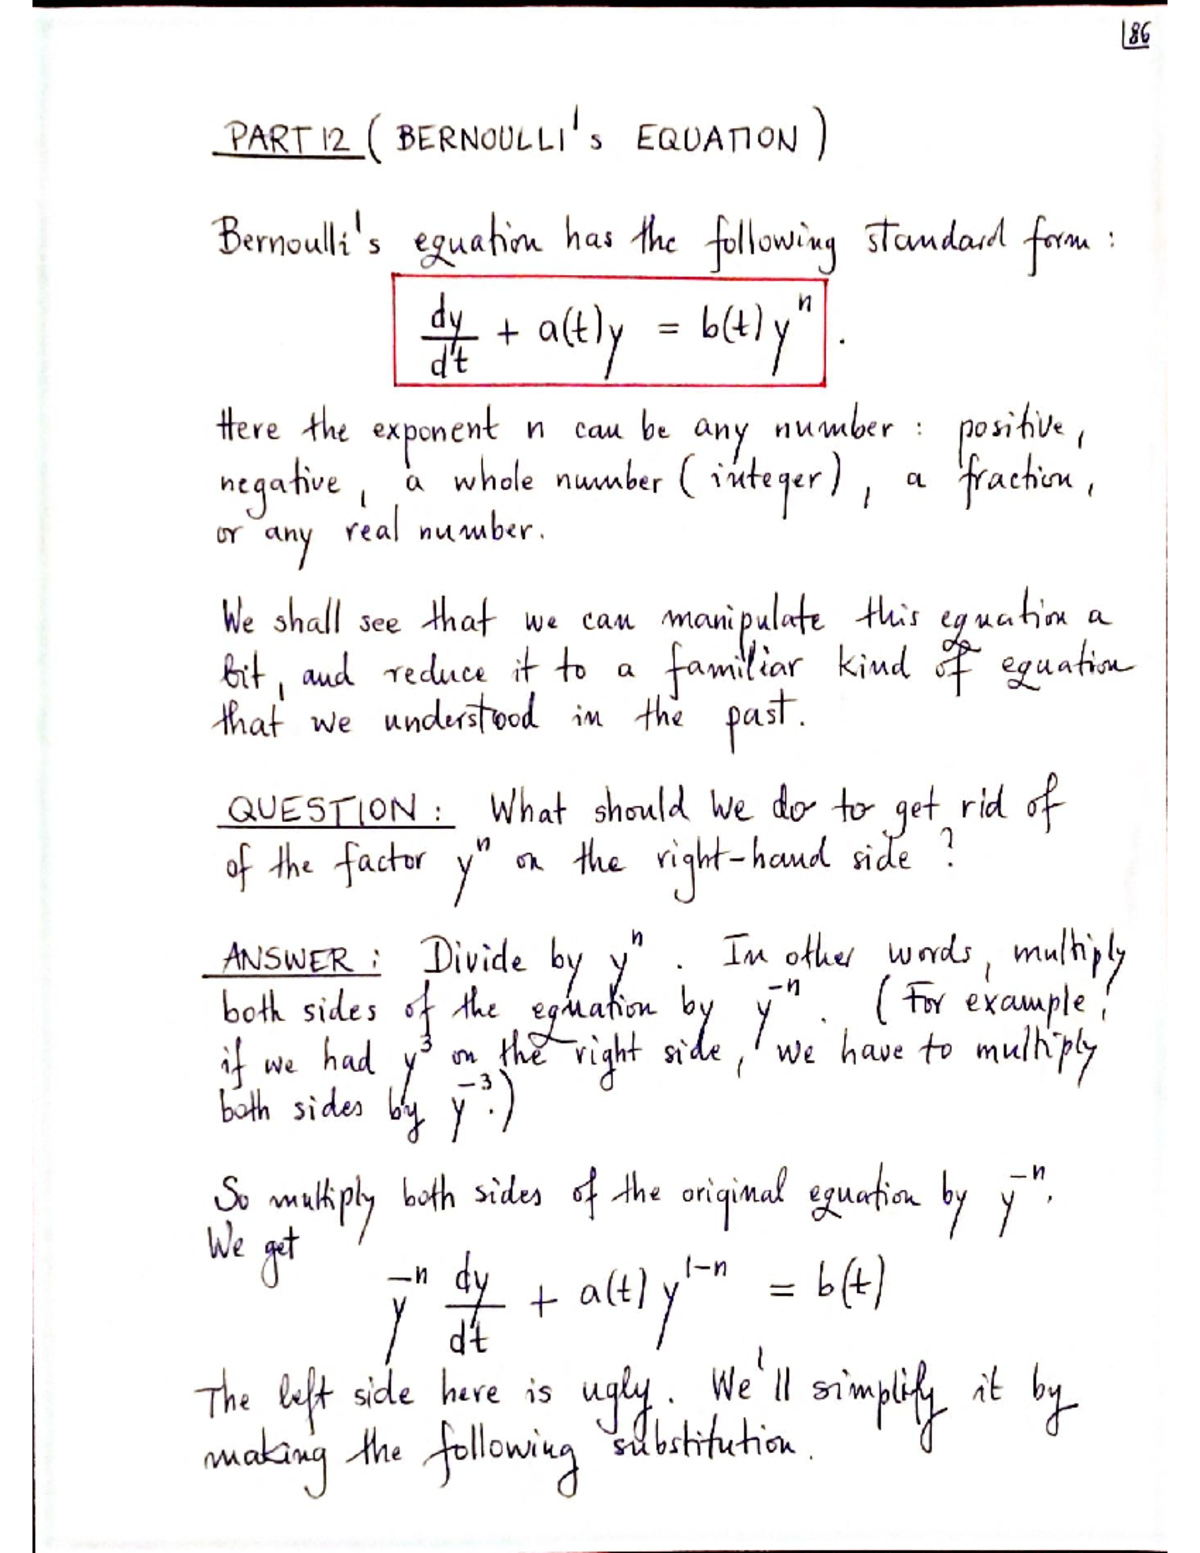 186
PART 12 (BERNOULLI's EQUATION)
Bernoulli's equation has the following standard form :
dy/dt + a(t)y = b(t)y^n .
Here the exponent n can be any number : positive,
negative, a whole number (integer), a fraction,
or any real number.
We shall see that we can manipulate this equation a
bit, and reduce it to a familiar kind of equation
that we understood in the past.
QUESTION : What should we do to get rid of
of the factor y^n on the right-hand side ?
ANSWER : Divide by y^n . In other words, multiply
both sides of the equation by y^-n . (For example,
if we had y^3 on the right side, we have to multiply
both sides by y^-3.)
So multiply both sides of the original equation by y^-n.
We get
y^-n dy/dt + a(t) y^1-n = b(t)
The left side here is ugly. We'll simplify it by
making the following substitution.